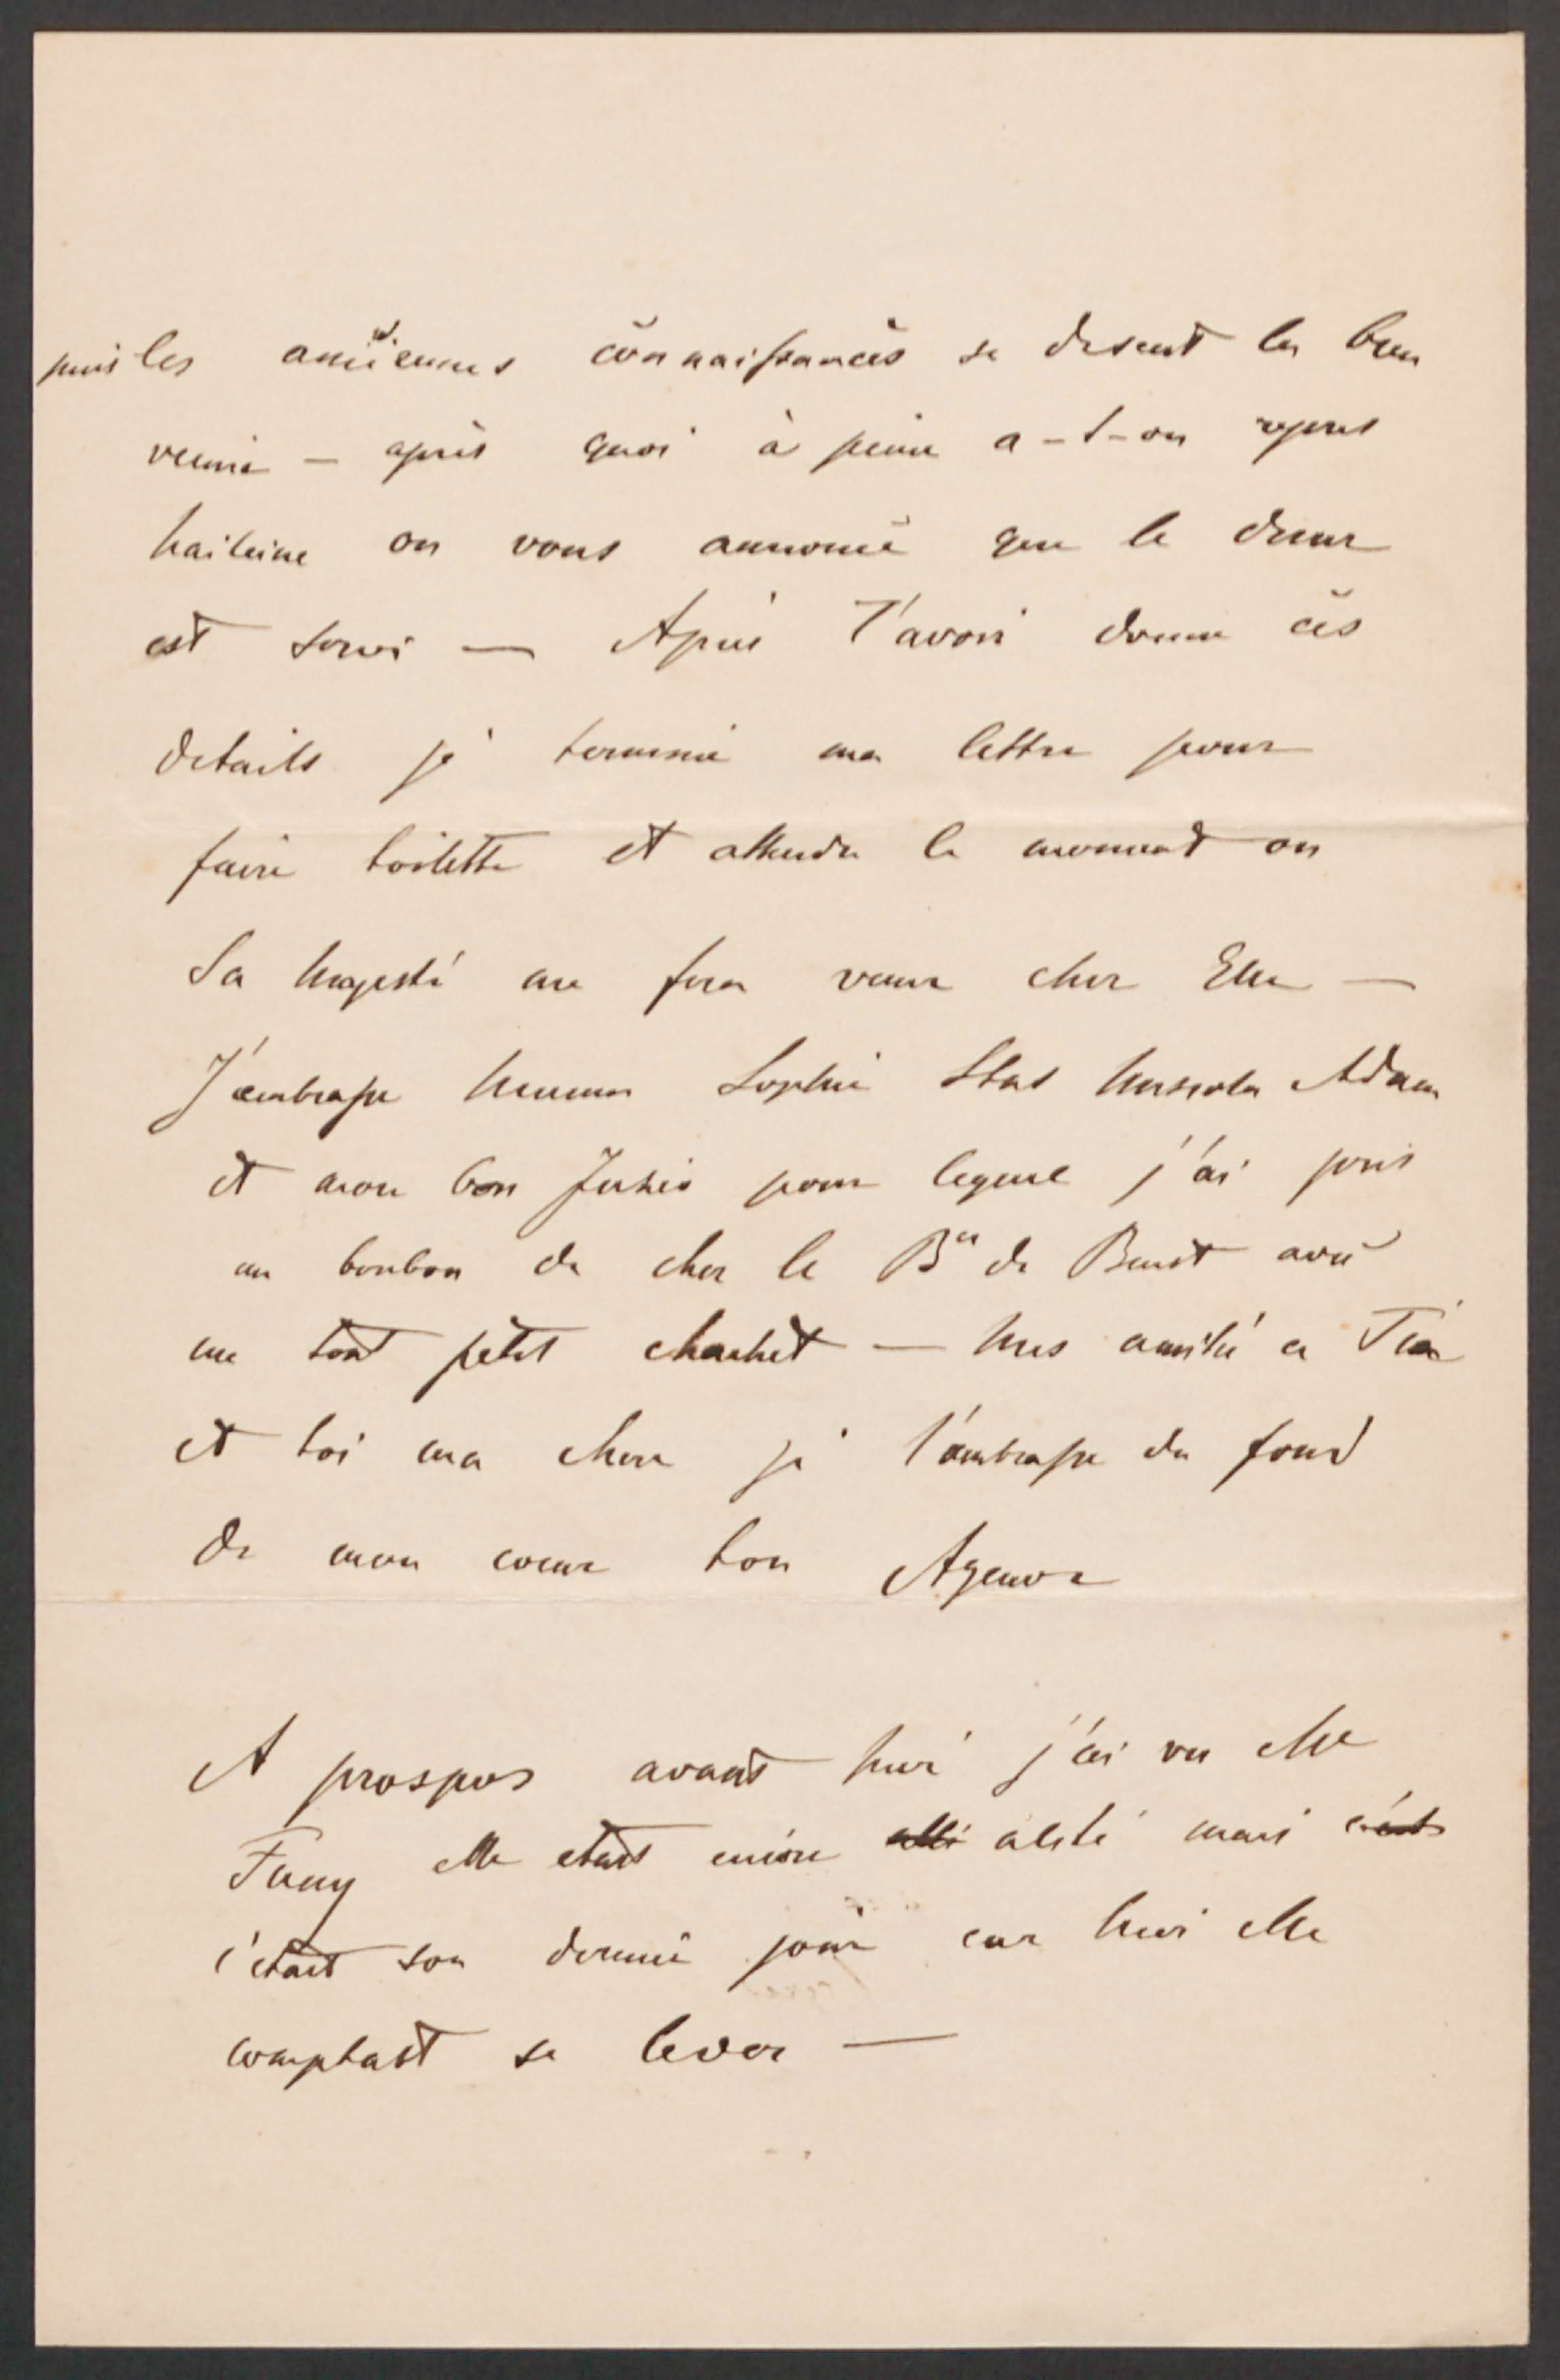 puis les anciennes connaissances se disent la bien
venue — après quoi à peine a-t-on repris
haileine on vous annonce que le diner
est servi — Apres T'avoir donne ces
details je termine ma lettre pour
faire toilette et attendre le moment ou
Sa Majesté me fera venir chez Elle —
J'embrasse Maman Sophie Stas Adam
et mon bon pour lequel j'ai pris
un bonbon de chez le Bon de Beust avec
un tout petit — Mes amitié a
et toi ma chere je t'embrasse du fond
de mon coeur ton Agenor
A prospos avant hier j'ai vu Me
Fany elle etait encore alité mais c'est
c'etait son dernie jour car hier elle
comptait se lever —